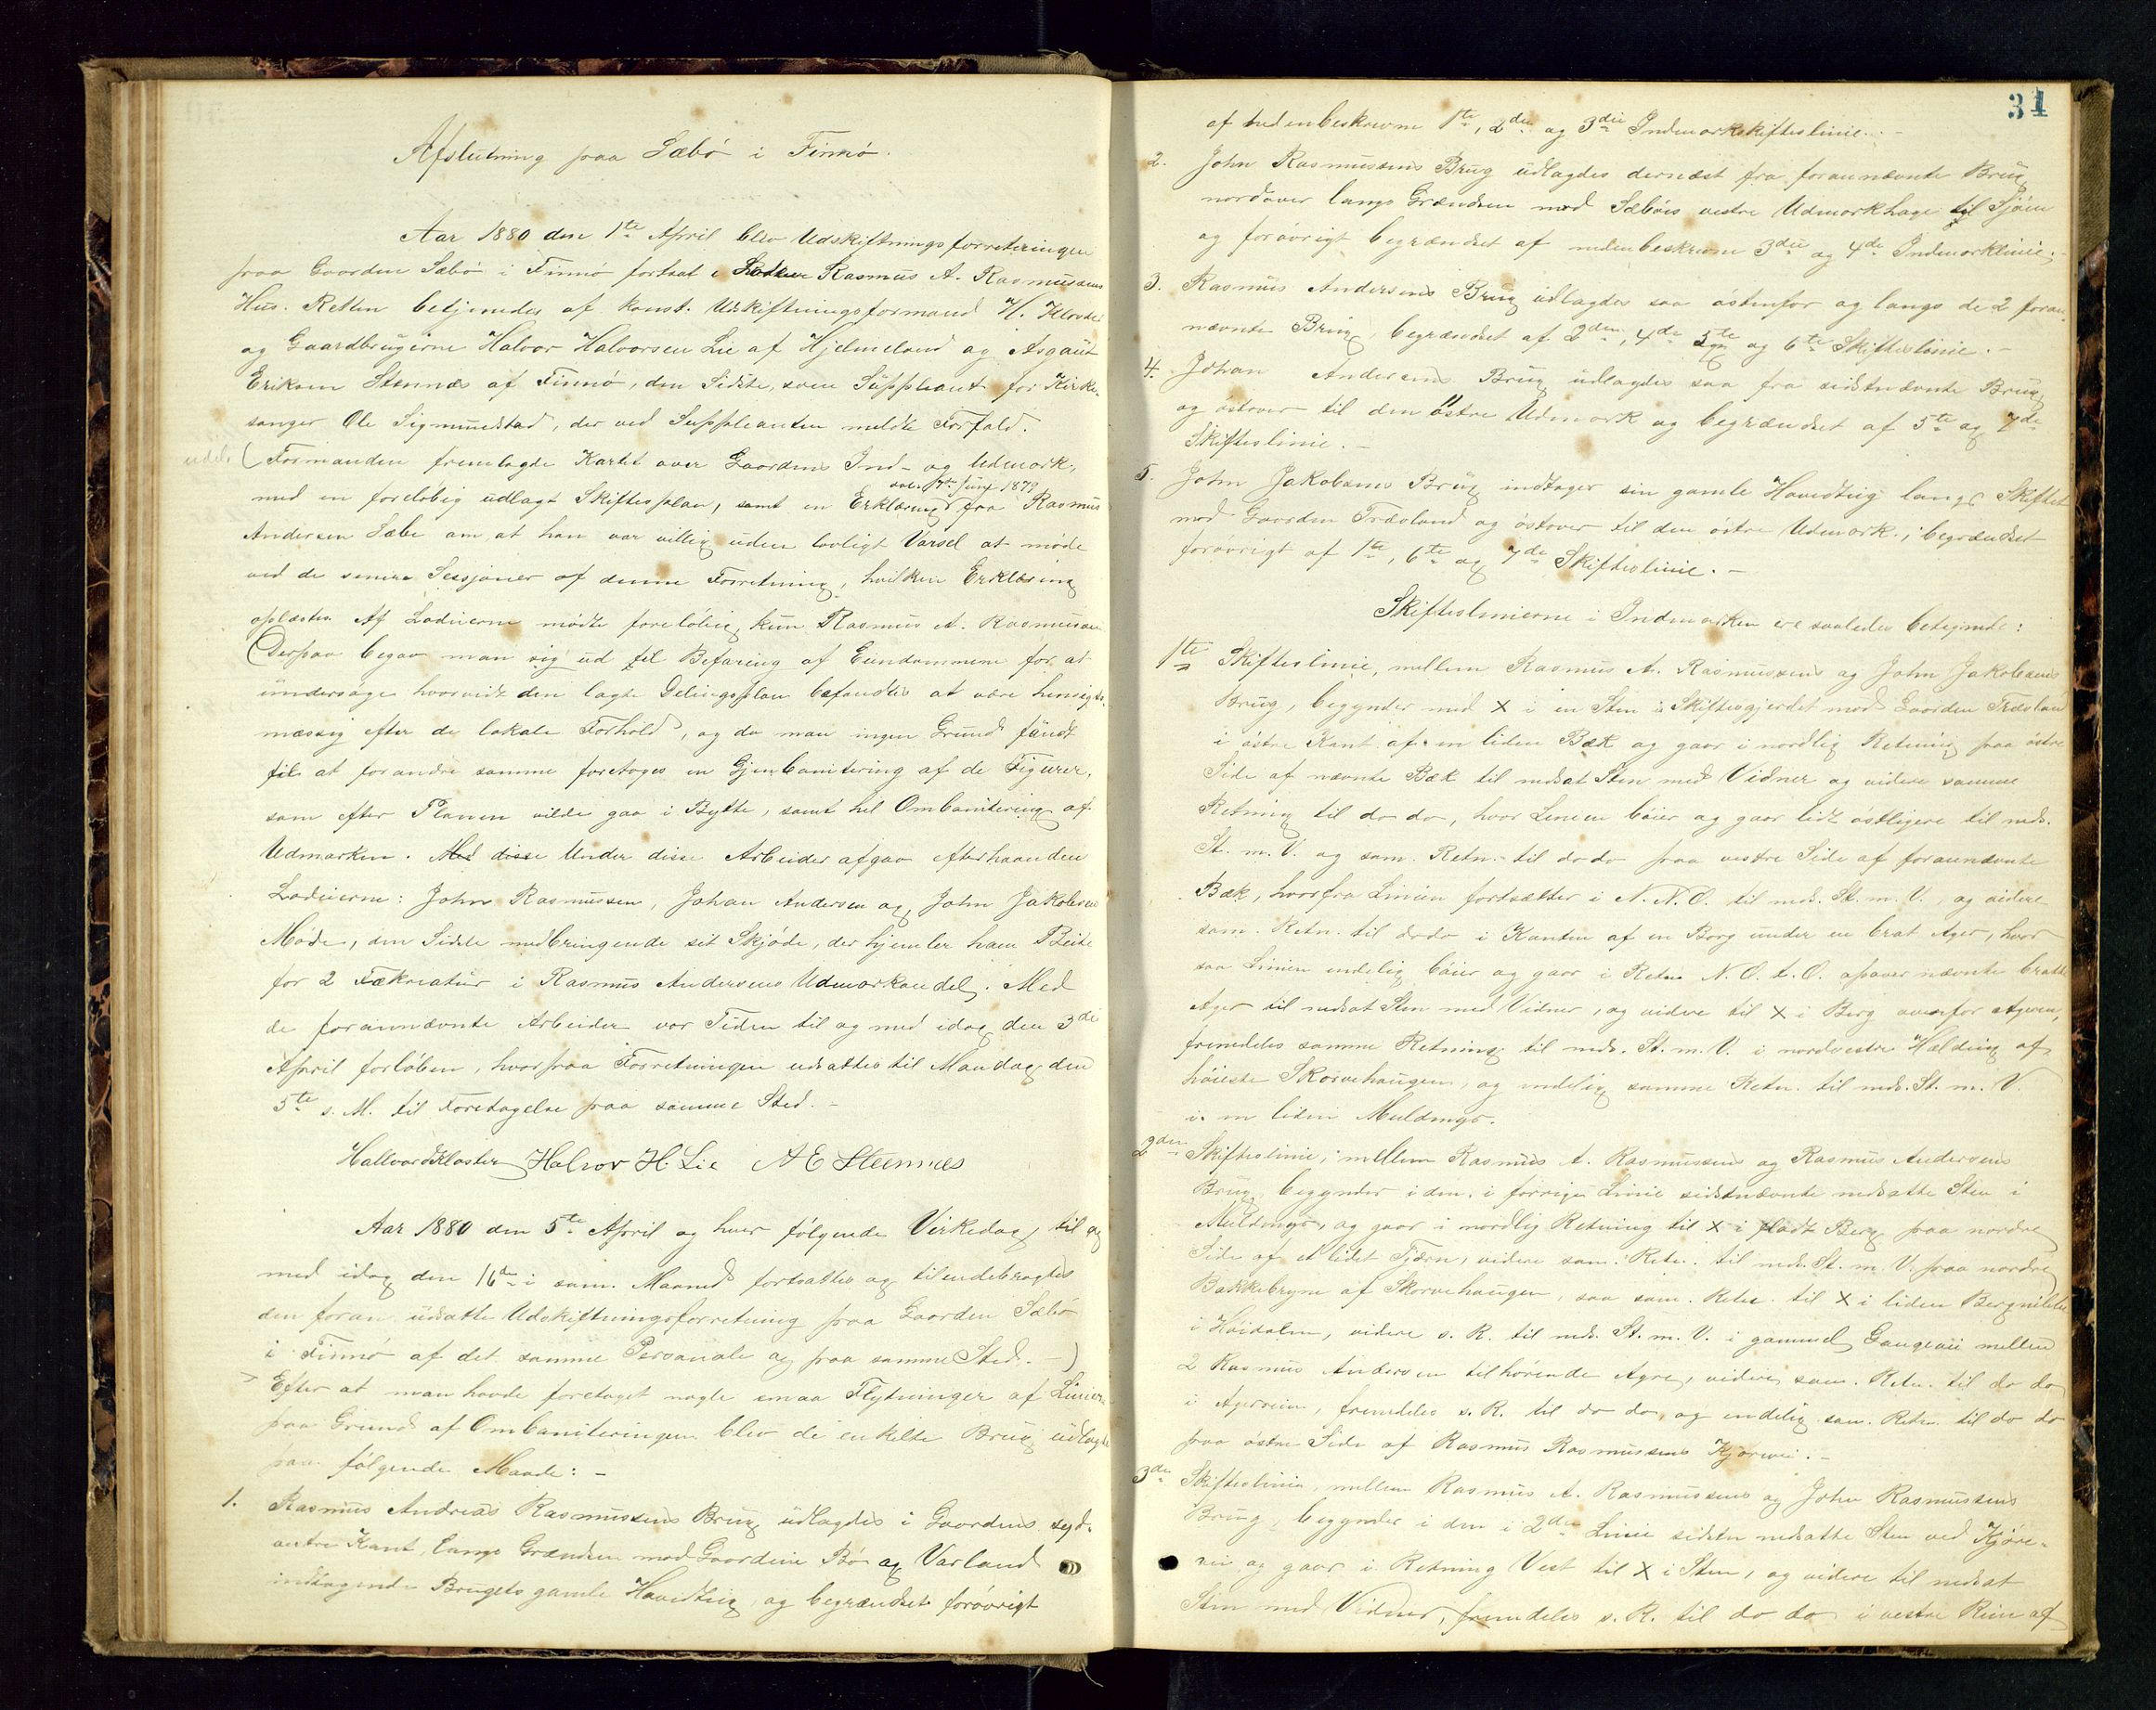 Afslutning paa Sæbö i Finnö.
Aar 1880 den 1te April blev Udskiftningsforretningen
paa Gaarden Sæbö i Finnö fortsat i Rasmus A. Rasmussens
Hus. Retten betjenedes af konst. Udskiftningsformand H. Kloster
og Gaardbrugerne Halvor Halvorsen Lie af Hjelmeland og Asgaut
Eriksen Stennæs af Finnö, den Sidste, som Suppleant for Kirke-
sanger Ole Sigmundstad, der ved Suppleanten meldte Forfald.
(Formanden fremlagde Kartet over Gaardens Ind- og Udmark,
dat. 17te Juni 1879
med en foreløbig udlagt Skiftesplan, samt en Erklæring fra Rasmus
Andersen Sæbø om at han var villig uden lovligt Varsel at møde
ved de senere Sessjoner af denne Forretning, hvilken Erklæring
oplæstes. Af Lodeierne mødte foreløbig kun Rasmus A. Rasmussen
(Derpaa begav man sig ud til Befaring af Eiendommene for at
undersøge hvorvidt den lagte Delingsplan befandtes at være hensigts-
mæssig efter de lokale Forhold, og da man ingen Grund fandt
til at forandre samme foretoges en Gjenbonitering af de Figurer,
som efter Planen vilde gaa i Bytte, samt hel Ombonitering af
Udmarken. Med disse Under disse Arbeider afgav efterhaanden
Lodeierne: John Rasmussen, Johan Andersen og John Jakobsen
Møde, den Sidste medbringende sit Skjøde, der hjemler ham Beite
for 2 Fækreatur i Rasmus Andersens Udmarkandel. Med
de forannævnte Arbeider var Tiden til og med idag den 3die
April forløben, hvorpaa Forretningen udsattes til Mandag den
5te s. M. til Foretagelse paa samme Sted. -
Hallvard Kloster Halvor H. Lie A E Stennæs
Aar 1880 den 5te April og hver følgende Virkedag til og
med idag den 16de i sam. Maaned fortsattes og tilendebragtes
den foran udsatte Udskiftningsforretning paa Gaarden Sæbö
i Finnö af det samme Personale og paa samme Sted. -)
Efter at man havde foretaget nogle smaa Flytninger af Linier
paa Grund af Omboniteringen blev de enkelte Brug udlagte
paa følgende Maade: -
1. Rasmus Andreas Rasmussens Brug udlagdes i Gaardens syd-
vestre Kant, langs Grændsen mod Gaardene Bø og Varland
indtagende Brugets gamle Hovedteig, og begrændset forøvrigt
31
af nedenbeskrevne 1te, 2den og 3die Indmarkskifteslinie. -
2. John Rasmussens Brug udlagdes dernæst fra forannævnte Brug
nordover langs Grændsen mod Sæbös vestre Udmarkhage til Sjöen
og forøvrigt begrændset af nedenbeskrevne 3die og 4de Indmarklinie. -
3. Rasmus Andersens Brug udlagdes saa østenfor og langs de 2 foran-
nævnte Brug, begrændset af 2den, 4de 5te og 6te Skifteslinie. -
4. Johan Andersens Brug udlagdes saa fra sidstnævnte Brug
og østover til den østre Udmark og begrændset af 5te og 7de
Skifteslinie. -
5. John Jakobsens Brug indtager sin gamle Hovedteig langs Skiftet
mod Gaarden Træsland og østover til den østre Udmark, begrændset
forøvrigt af 1te, 6te og 7de Skifteslinie. -
Skifteslinierne i Indmarken ere saaledes betegnede:
1te Skifteslinie, mellem Rasmus A. Rasmussens og John Jakobsens
Brug, begynder med X i en Sten i Skiftesgjerdet mod Gaarden Træsland
i østre Kant af en liden Bæk og gaar i nordlig Retning paa østre
Side af nævnte Bæk til nedsat Sten med Vidner og videre samme
Retning til do do, hvor Linien bøier og gaar lidt østligere til neds.
St. m. V. og sam. Retn. til do do paa vestre Side af forannævnte
Bæk, hvorfra Linien fortsætter i N. N. O. til neds. St. m. V., og videre
sam. Retn. til do do i Kanten af en Borg under en brat Ager, hvor
saa Linien endelig bøier og gaar i Retn. N. O. t. O. opover nævnte bratte
Ager til nedsat Sten med Vidner, og videre til X i Berg ovenfor Ageren,
fremdeles samme Retning til neds. St. m. V. i nordvestre Hælding af
høieste Skorvehaugen, og endelig samme Retn. til neds. St. m. V.
i en liden Muldmyr.
2den Skifteslinie, mellem Rasmus A. Rasmussens og Rasmus Andersens
Brug, begynder i den i forrige Linie sidstnævnte nedsatte Sten i
Muldmyr, og gaar i nordlig Retning til X i fladt Berg paa nordre
Side af et lidet Tjærn, videre sam. Retn. til neds. St. m. V. paa nordre
Bakkebryn af Skorvehaugen, saa sam. Retn. til X i liden Bergnibbe
i Høidalen, videre s. R. til neds. St. m. V. i gammel Gangvei mellem
2 Rasmus Andersen tilhørende Agre, videre sam. Retn. til do do
i Agerrein, fremdeles s. R. til do do, og endelig sam. Retn. til do do
paa østre Side af Rasmus Rasmussens Kjørevei. -
3die Skifteslinie, mellem Rasmus A. Rasmussens og John Rasmussens
Brug, begynder i den i 2den Linie sidste nedsatte Sten ved Kjøre-
vei og gaar i Retning Vest til X i Sten, og videre til nedsat
Sten med Vidner, fremdeles s. R. til do do i vestre Rein af